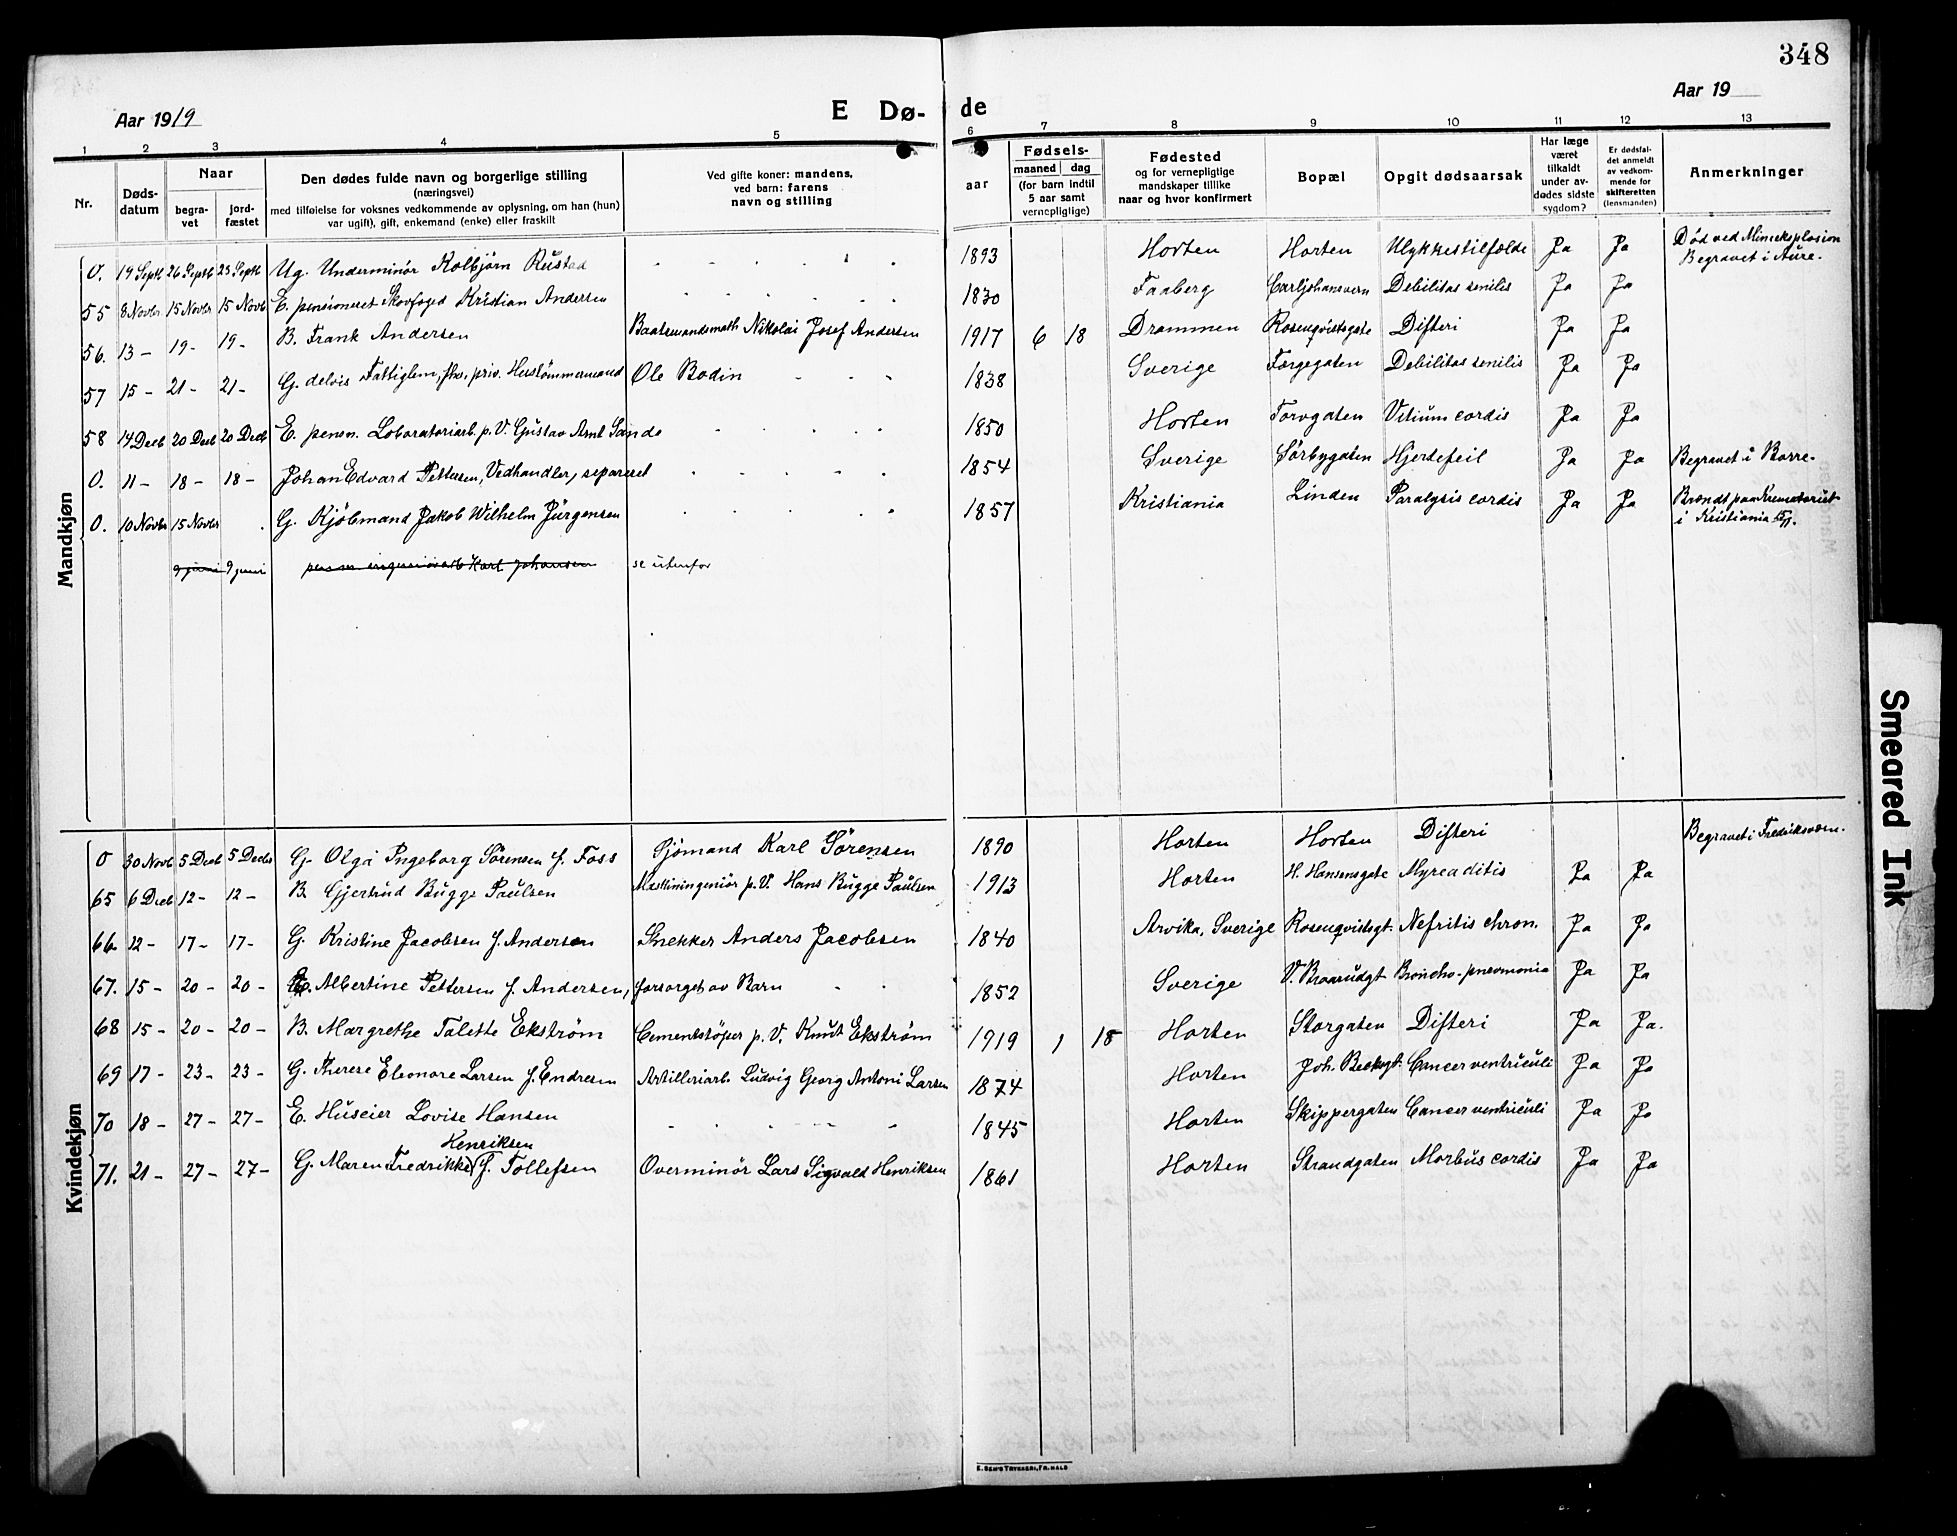 348
Aar 1919
E Dø-
de
Aar 19
1 2 3 4 5 6 7 8 9 10 11 12 13
Nr.
Døds-
datum
Naar
begra-
vet
jord-
fæstet
Den dødes fulde navn og borgerlige stilling
(næringsvei)
med tilføielse for voksnes vedkommende av oplysning, om han (hun)
var ugift), gift, enkemand (enke) eller fraskilt
Ved gifte koner: mandens,
ved barn: farens
navn og stilling
aar
Fødsels-
maaned dag
(for barn indtil
5 aar samt
vernepligtige)
Fødested
og for vernepligtige
mandskaper tillike
naar og hvor konfirmert
Bopæl
Opgit dødsaarsak
Har læge
været
tilkaldt
under av-
dødes sidste
sygdom?
Er dødsfal-
det anmeldt
av vedkom-
mende for
skifteretten
(lensmanden)
Anmerkninger
Mandkjøn
0. 19 Septb 26 Septb 23 Septb Ug. Underminör Kolbjörn Rustad 1893 Horten Horten Ulykkestilfælde Ja Ja Död ved Mineeksplosion
Begravet i Aure.
55 8 Novbr 15 Novbr 15 Novb E. pensioneret Skovfoged Kristian Andersen 1830 Faaberg Carljohansvern Debilitas senilis Ja Ja
56. 13 - 19 - 19 - B. Frank Andersen Baatsmandsmath Nikolai Josef Andersen 1917 6 18 Drammen Rosenqvistsgate Difteri Ja Ja
57 15 - 21 - 21 - G. delvis Fattiglem, fhv. priv. Hustömmermand Ole Bodin 1838 Sverige Færgegaten Debilitas senilis Ja Ja
58 14 Decb 20 Decb 20 Decb E. pens. Laboratoriarb. p. V. Gustav Arnt Sande 1850 Horten Torvgaten Vitium cordis Ja Ja
0. 11 - 18 - 18 - Johan Edvard Pettersen, Vedhandler, separeret 1854 Sverige Sörbygaten Hjertefeil Ja Ja Begravet i Borre.
0. 10 Novbr 15 Novbr G. Kjöbmand Jakob Wilhelm Jürgensen 1857 Kristiania Linden Paralysis cordis Ja Ja Brændt paa Krematoriet
i Kristiania 15/11.
9 juni 9 juni pens. m. ingeniörarb Karl Johansen se utenfor
Kvindekjøn
0 30 Novb 5 Decb 5 Decbr G. Olga Ingeborg Sörensen f. Foss Sjömand Karl Sörensen 1890 Horten Horten Difteri Begravet i Fredriksværn.
65 6 Decb 12 - 12 - B. Gjertrud Bugge Paulsen Maskiningeniör p. V. Hans Bugge Paulsen 1913 Horten H. Hansensgate Ja Ja
66. 12 - 17 - 17 - G. Kristine Jacobsen f. Andersen Snekker Anders Jacobsen 1840 Arvika, Sverige Rosenqvistsgt. Nefritis chron. Ja Ja
67. 15 - 20 - 20 - E. Albertine Pettersen f. Andersen, forsørget av Barn 1852 Sverige V. Braarudgt Broncho-pneumonia Ja Ja
68 15 - 20 - 20 - B. Margrethe Talette Ekström Cementstöper p. V. Knut Ekström 1919 1 18 Horten Storgaten Difteri Ja Ja.
69 17 - 23 - 23 - G. Therese Eleonore Larsen f. Endresen Artilleriarb. Ludvig Georg Antoni Larsen 1874 Horten Joh. Beckgt. Cancer ventriculi Ja Ja
70 18 - 27 - 27 - E. Huseier Lovise Hansen 1845 Horten Skippergaten Cancer ventriculi Ja Ja
71. 21 - 27 - 27 - G. Maren Fredrikke Henriksen f. Tollefsen Overminör Lars Sigvald Henriksen 1861 Horten Strandgaten Morbus cordis Ja Ja
Smeared Ink